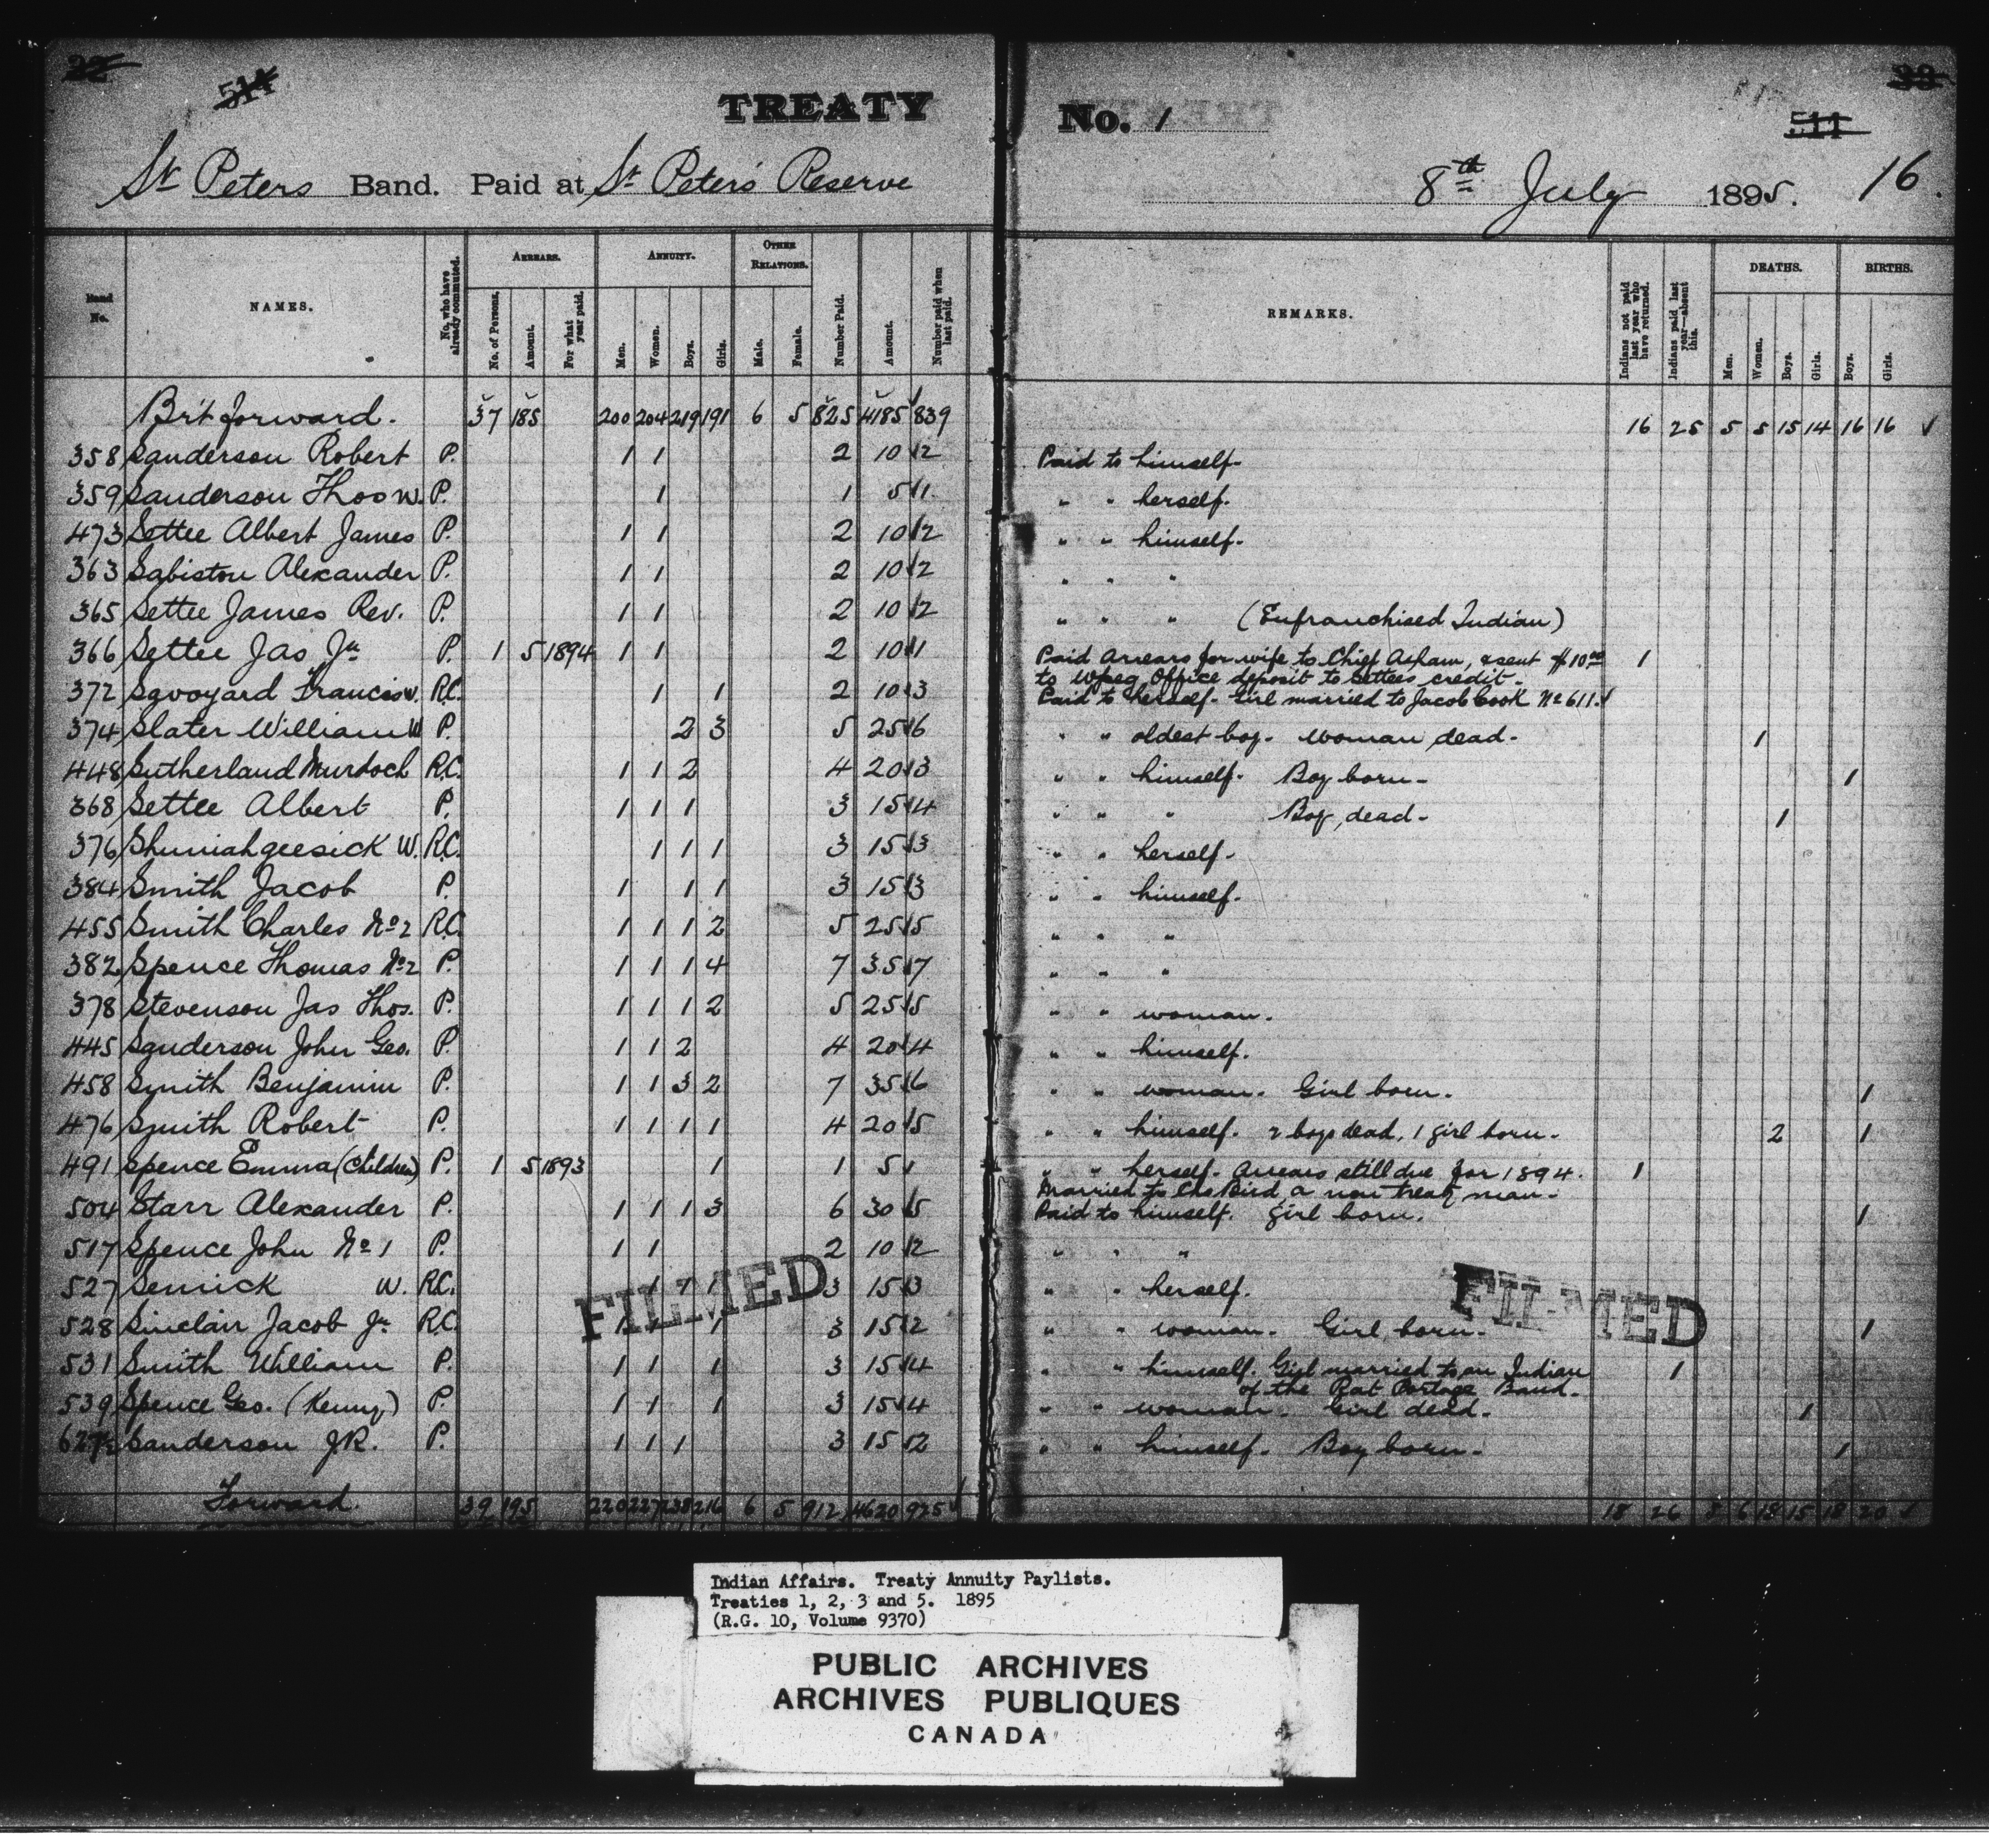 22
511
TREATY No. 1
33
511
St Peters Band. Paid at St Peter's Reserve 8th July 1895. 16.
Band No.
NAMES.
No. who have already commuted.
ARREARS.
No. of Persons.
Amount.
For what year paid.
ANNUITY.
Men.
Women.
Boys.
Girls.
OTHER RELATIONS.
Male.
Female.
Number Paid.
Amount.
Number paid when last paid.
REMARKS.
Indians not paid last year who have returned.
Indians paid last year—absent this.
DEATHS.
Men.
Women.
Boys.
Girls.
BIRTHS.
Boys.
Girls.
Brt forward. 37 185 200 204 219 191 6 5 825 4185 839 16 25 5 5 15 14 16 16 ✓
358 Sanderson Robert P. 1 1 2 10 2 Paid to himself-
359 Sanderson Thos W. P. 1 1 5 1 " " herself.
473 Settee Albert James P. 1 1 2 10 2 " " himself.
363 Sabiston Alexander P. 1 1 2 10 2 " " "
365 Settee James Rev. P. 1 1 2 10 2 " " " (Enfranchised Indian)
366 Settee Jas Jr P. 1 5 1894 1 1 2 10 1 Paid Arrears for wife to Chief Asham, & sent $10.00 1
to Wpeg Office deposit to Settees credit-
372 Savoyard Francis w. R.C. 1 1 2 10 3 Paid to herself- Girl married to Jacob Cook No 611. ✓
374 Slater William W P. 2 3 5 25 6 " " oldest boy. woman dead- 1
448 Sutherland Murdoch R.C. 1 1 2 4 20 3 " " himself- Boy born- 1
368 Settee Albert P. 1 1 1 3 15 4 " " " Boy dead- 1
376 Shuniahgeesick W. R.C. 1 1 1 3 15 3 " " herself-
384 Smith Jacob P. 1 1 1 3 15 3 " " himself.
455 Smith Charles No 2 R.C. 1 1 1 2 5 25 5 " " "
382 Spence Thomas No 2 P. 1 1 1 4 7 35 7 " " "
378 Stevenson Jas Thos. P. 1 1 1 2 5 25 5 " " woman.
445 Sanderson John Geo. P. 1 1 2 4 20 4 " " himself.
458 Smith Benjamin P. 1 1 3 2 7 35 6 " " woman. Girl born. 1
476 Smith Robert P. 1 1 1 1 4 20 5 " " himself. 2 boys dead, 1 girl born- 2 1
491 Spence Emma (Children) P. 1 5 1893 1 1 5 1 " " herself- Arrears still due for 1894. 1
Married to Bird, a non treaty man-
504 Starr Alexander P. 1 1 1 3 6 30 5 Paid to himself. girl born. 1
517 Spence John No 1 P. 1 1 2 10 2 " " "
527 Senick W. R.C. 1 1 1 3 15 3 " " herself.
528 Sinclair Jacob Jr R.C. 1 1 1 3 15 2 " " woman. Girl born- 1
531 Smith William P. 1 1 1 3 15 4 " " himself. Girl married to an Indian 1
of the Rat Portage Band-
539 Spence Geo. (Kenny) P. 1 1 1 3 15 4 " " woman. Girl dead- 1
Sanderson J.R. P. 1 1 1 3 15 2 " " himself- Boy born- 1
Forward. 39 195 220 227 238 216 6 5 912 4620 925 ✓ 18 26 6 18 15 18 20 ✓
FILMED
FILMED
Indian Affairs. Treaty Annuity Paylists.
Treaties 1, 2, 3 and 5. 1895
(R.G. 10, Volume 9370)
PUBLIC ARCHIVES
ARCHIVES PUBLIQUES
CANADA